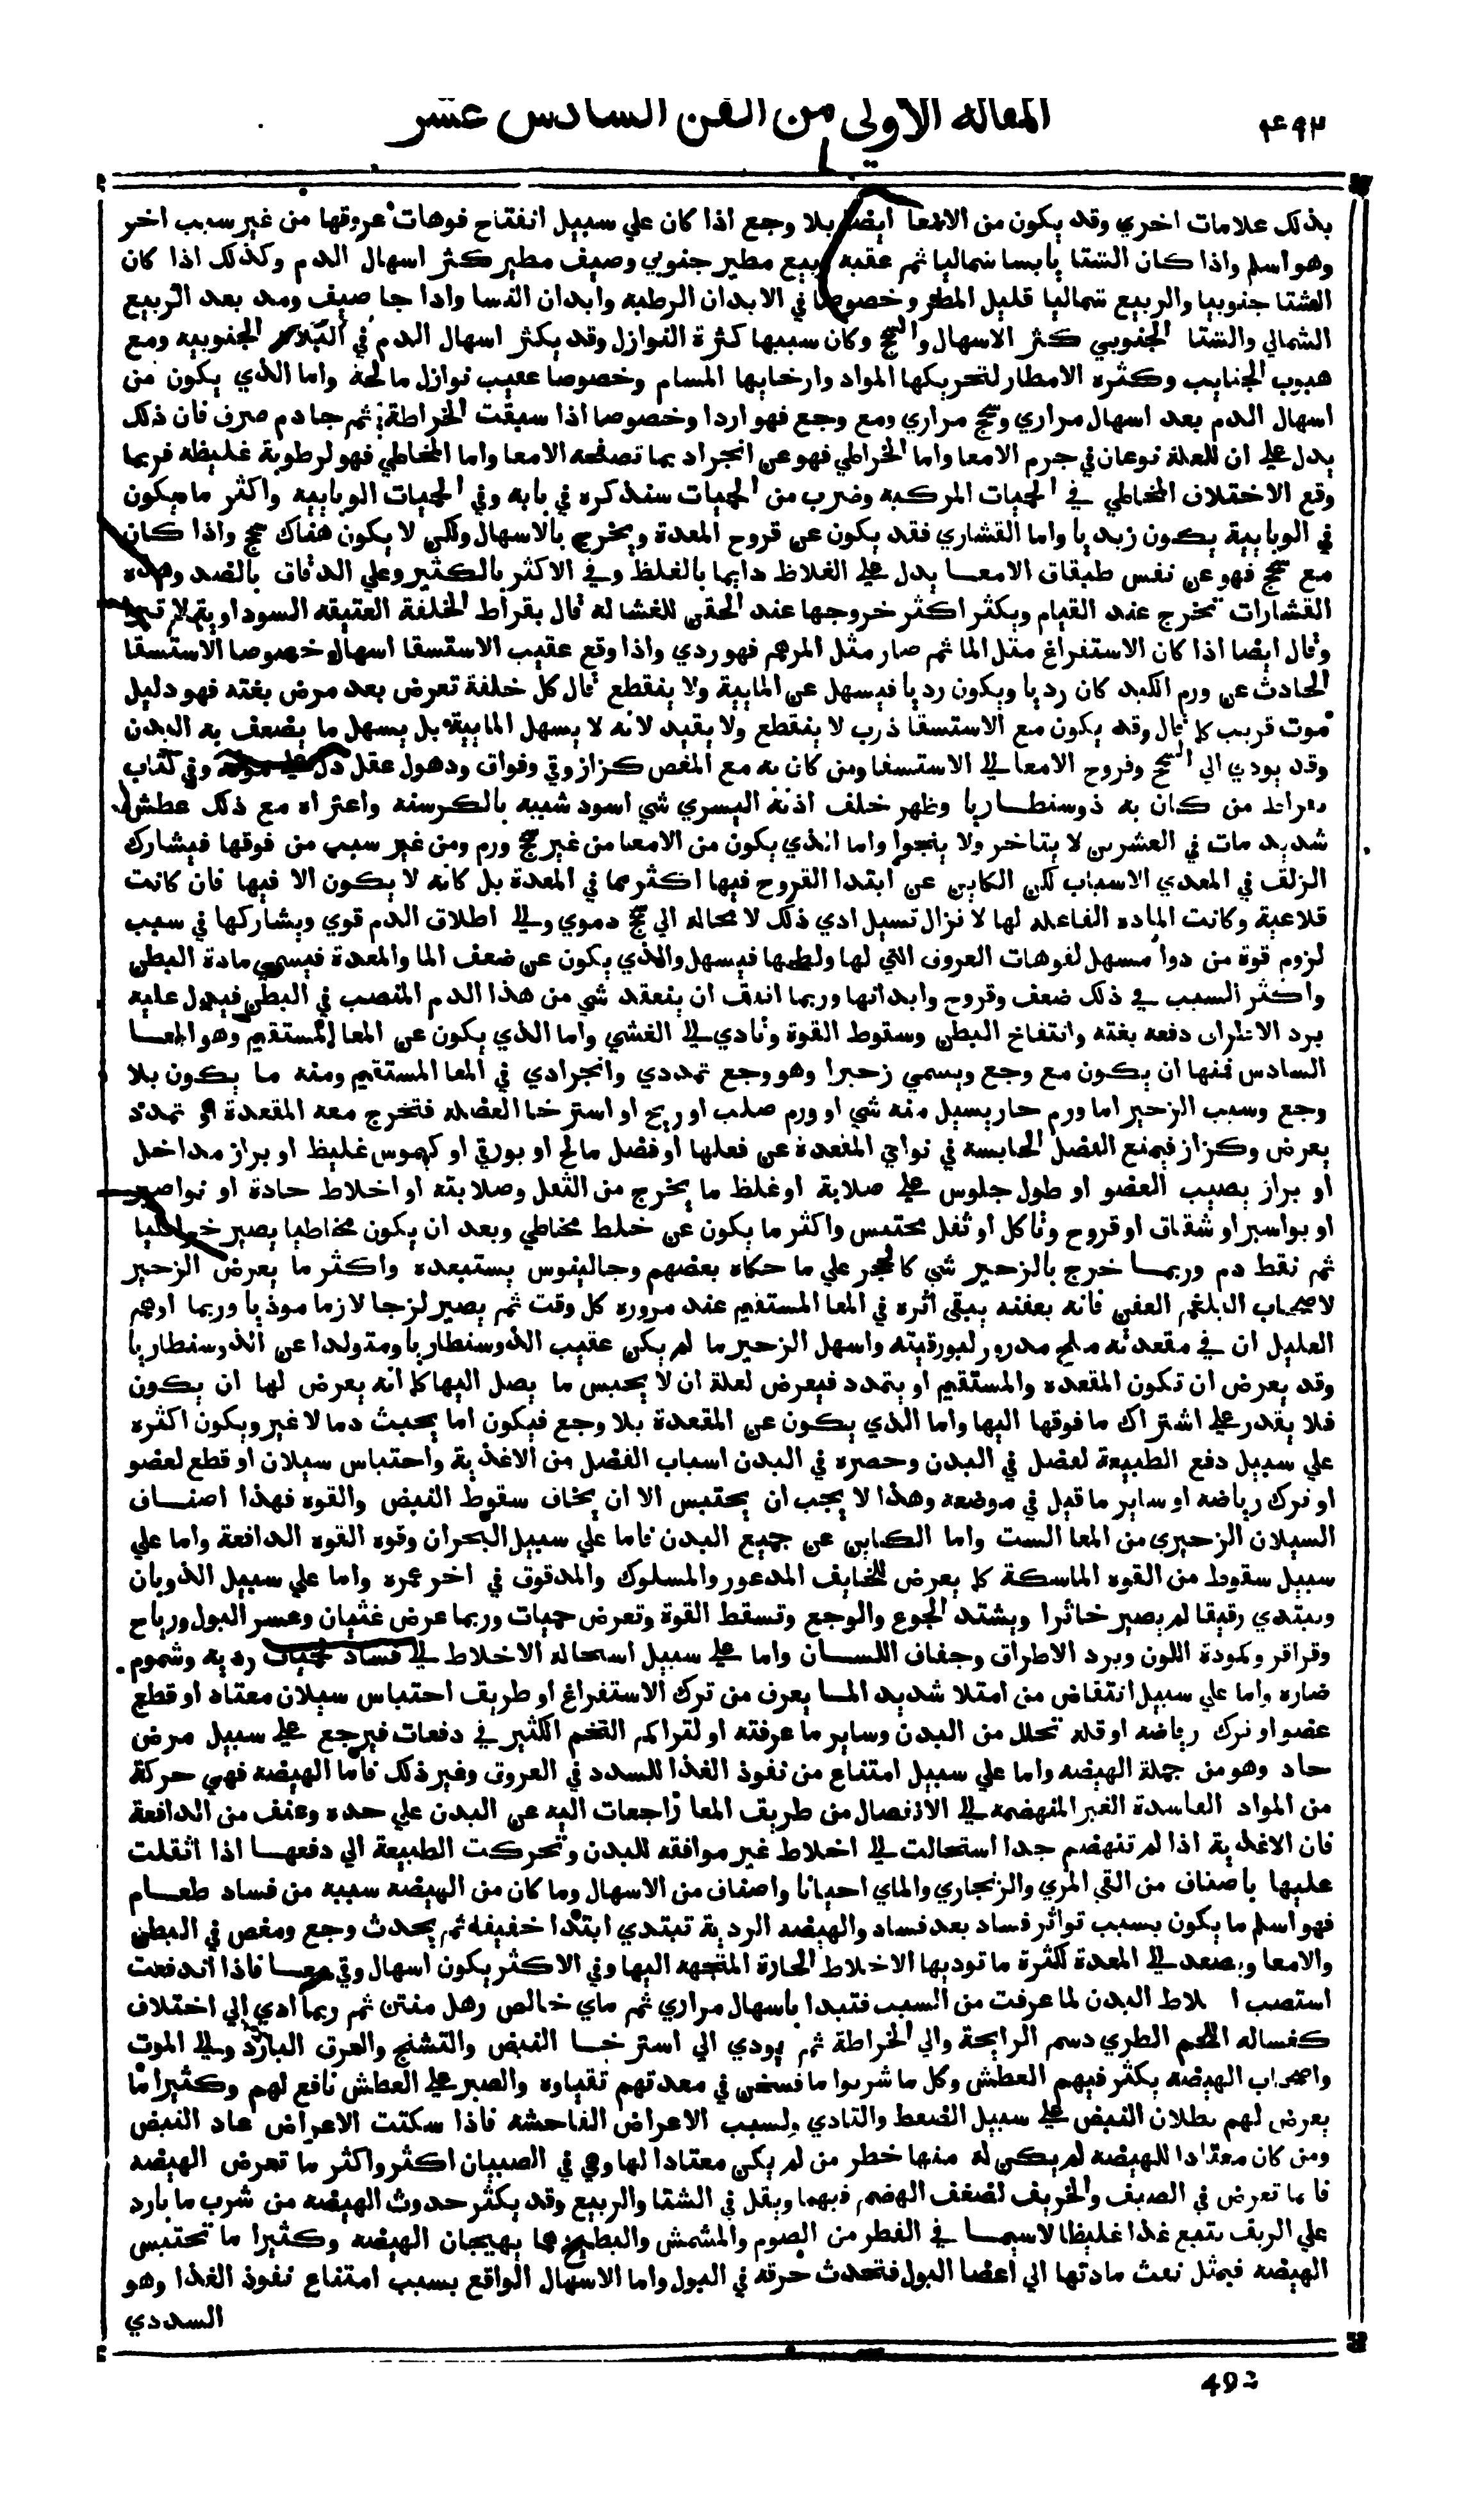 المقاله الاولى من الفن السادس عشر
بذلك علامات اخري وقد يكون من الامعا ايضا بلا وجع اذا كان علي سبيل انفتاح فوهات عروقها من غير سبب اخر
وهو اسلم واذا كان الشتا يابسا شماليا ثم عقبه ربيع مطير جنوبي وصيف مطير كثر اسهال الدم وكذلك اذا كان
الشتا جنوبيا والربيع شماليا قليل المطر وخصوصا في الابدان الرطبه وابدان النسا واذا جا صيف ومد بعد الربيع
الشمالي والشتا الجنوبي كثر الاسهال والسحج وكان سببها كثرة النوازل وقد يكثر اسهال الدم في البلاد الجنوبيه ومع
هبوب الجنايب وكثره الامطار لتحريكها المواد وارخايها المسام وخصوصا عقيب نوازل مالحة واما الذي يكون من
اسهال الدم بعد اسهال مراري وسحج مراري ومع وجع فهو اردا وخصوصا اذا سبقت الخراطة ثم جا دم صرف فان ذلك
يدل علي ان للعلة نوعان في جرم الامعا واما الخراطي فهو عن انجراد بما تصفحه الامعا واما المخاطي فهو لرطوبة غليظه فربما
وقع الاختلاف المخاطي في الحميات المركبه وضرب من الحميات سنذكره في بابه وفي الحميات الوبايية واكثر ما يكون
في الوبايية يكون زبديا واما القشاري فقد يكون عن قروح المعدة ويخرج بالاسهال ولكن لا يكون هناك سحج واذا كان
مع سحج فهو عن نفس طبقات الامعا يدل علي الغلاظ دايما بالغلظ وفي الاكثر بالكثير وعلي الدقاق بالضد وهذه
القشارات تخرج عند القيام ويكثر اكثر خروجها عند الحقن للغشا له قال بقراط الخلفة العتيقه السوداوية لا تبرا
وقال ايضا اذا كان الاستفراغ مثل الما ثم صار مثل المرهم فهو ردي واذا وقع عقيب الاستسقا اسهال وخصوصا الاستسقا
الحادث عن ورم الكبد كان رديا ويكون رديا فيسهل عن المايية ولا ينقطع قال كل خلفة تعرض بعد مرض بغته فهو دليل
موت قريب كما قال وقد يكون مع الاستسقا ذرب لا ينقطع ولا يفيد لانه لا يسهل المايية بل يسهل ما يضعف به البدن
وقد يودي الي السحج وقروح الامعا الي الاستسقا ومن كان به مع المغص كزاز وقي وفواق وذهول عقل دل علي موته وفي كتاب
بقراط من كان به ذوسنطاريا وظهر خلف اذنه اليسري شي اسود شبيه بالكرسنه واعتراه مع ذلك عطش
شديد مات في العشرين لا يتاخر ولا ينجوا واما الذي يكون من الامعا من غير سحج ورم ومن غير سبب من فوقها فيشارك
الزلق في المعدي الاسباب لكن الكاين عن ابتدا القروح فيها اكثر مما في المعدة بل كانه لا يكون الا فيها فان كانت
قلاعية وكانت الماده الفاعله لها لا تزال تسيل ادي ذلك لا محاله الي سحج دموي والي اطلاق الدم قوي ويشاركها في سبب
لزوم قوة من دوا مسهل لفوهات العروق التي لها فيسهل والذي يكون عن ضعف الما والمعدة فيسمي مادة البطن
واكثر السبب في ذلك ضعف وقروح وابدانها وربما اتفق ان ينعقد شي من هذا الدم المنصب في البطن فيدل عليه
برد الاطراف دفعه بغته وانتفاخ البطن وسقوط القوة وتادي الي الغشي واما الذي يكون عن المعا المستقيم وهو المعا
السادس فمنها ان يكون مع وجع ويسمي زحيرا وهو وجع تمددي وانجرادي في المعا المستقيم ومنه ما يكون بلا
وجع وسبب الزحير اما ورم حار يسيل منه شي او ورم صلب او ريح او استرخا العضله فتخرج معه المقعدة او تمدد
يعرض وكزاز فيمنع العضل الحابسه في نواحي المقعدة عن فعلها او فضل مالح او بورقي او كيموس غليظ او براز مداخل
او براز يصيب العضو او طول جلوس علي صلابة او غلظ ما يخرج من الثفل وصلابته او اخلاط حادة او نواصير
او بواسير او شقاق او قروح وتاكل او ثفل محتبس واكثر ما يكون عن خلط مخاطي وبعد ان يكون مخاطيا يصير خراطيا
ثم نقط دم وربما خرج بالزحير شي كالحجر علي ما حكاه بعضهم وجالينوس يستبعده واكثر ما يعرض الزحير
لاصحاب البلغم العفن فانه بعفنه يبقي اثره في المعا المستقيم عند مروره كل وقت ثم يصير لزجا لازما موذيا وربما اوهم
العليل ان في مقعدته ملح مذرور لبورقيته واسهل الزحير ما لم يكن عقيب الذوسنطاريا ومتولدا عن الذوسنطاريا
وقد يعرض ان تكون المقعده والمستقيم او يتمدد فيعرض لعلة ان لا يحبس ما يصل اليها كما انه يعرض لها ان يكون
فلا يقدر علي اشتراك ما فوقها اليها واما الذي يكون عن المقعدة بلا وجع فيكون اما يحبث دما لا غير ويكون اكثره
علي سبيل دفع الطبيعة لفضل في البدن وحصره في البدن اسباب الفضل من الاغذية واحتباس سيلان او قطع لعضو
او ترك رياضه او ساير ما قيل في موضعه وهذا لا يجب ان يحتبس الا ان يخاف سقوط النبض والقوه فهذا اصناف
السيلان الزحيري من المعا الست واما الكاين عن جميع البدن فاما علي سبيل البحران وقوه القوه الدافعة واما علي
سبيل سقوط من القوه الماسكة كما يعرض للخايف المذعور والمسلوك والمدقوق في اخر عمره واما علي سبيل الذوبان
ويبتدي رقيقا لم يصير خاثرا ويشتد الجوع والوجع وتسقط القوة وتعرض حميات وربما عرض غثيان وعسر البول ورياح
وقراقر وكمودة اللون وبرد الاطراف وجفاف اللسان واما علي سبيل استحاله الاخلاط الي فساد لحميات رديه وشموم
ضاره واما علي سبيل انتقاض من امتلا شديد المسا يعرف من ترك الاستفراغ او طريق احتباس سيلان معتاد او قطع
عضو او ترك رياضه او قلة تحلل من البدن وساير ما عرفته او لتراكم التخم الكثير في دفعات فيرجع علي سبيل مرض
حاد وهو من جملة الهيضه واما علي سبيل امتناع من نفوذ الغذا للسدد في العروق وغير ذلك فاما الهيضه فهي حركة
من المواد الفاسدة الغير المنهضمه الي الانفصال من طريق المعا راجعات اليه عن البدن علي حده وعنف من الدافعة
فان الاغذية اذا لم تنهضم جدا استحالت الي اخلاط غير موافقه للبدن وتحركت الطبيعة الي دفعها اذا اثقلت
عليها باصناف من القي المري والزنجاري والماي احيانا واصناف من الاسهال وما كان من الهيضه سببه من فساد طعام
فهو اسلم ما يكون بسبب تواتر فساد بعد فساد والهيضه الردية تبتدي ابتدا خفيفه ثم يحدث وجع ومغص في البطن
والامعا ويصعد الي المعدة لكثرة ما توديها الاخلاط الحارة المتجهه اليها وفي الاكثر يكون اسهال وقي معا فاذا اندفعت
استصب ا لاط البدن لما عرفت من السبب فتبدا باسهال مراري ثم ماي خالص رهل منتن ثم ربما ادي الي اختلاف
كغساله اللحم الطري دسم الرايحة والي الخراطة ثم يودي الي استرخا النبض والتشنج والعرق البارد والي الموت
واصحاب الهيضه يكثر فيهم العطش وكل ما شربوا ما فسخن في معدتهم تقياوه والصبر علي العطش نافع لهم وكثيرا ما
يعرض لهم بطلان النبض علي سبيل الضغط والتادي ولسبب الاعراض الفاحشه فاذا سكنت الاعراض عاد النبض
ومن كان معتادا للهيضه لم يكن له منها خطر من لم يكن معتادا لها وهي في الصبيان اكثر واكثر ما تعرض الهيضه
فانما تعرض في الصيف والخريف لضعف الهضم فيهما ويقل في الشتا والربيع وقد يكثر حدوث الهيضه من شرب ما بارد
علي الريق يتبع غذا غليظا لاسيما في الفطر من الصوم والمشمش والبطيخ مما يهيجان الهيضه وكثيرا ما تحتبس
الهيضه فيمثل نعث مادتها الي اعضا البول فتحدث حرقه في البول واما الاسهال الواقع بسبب امتناع نفوذ الغذا وهو
السددي